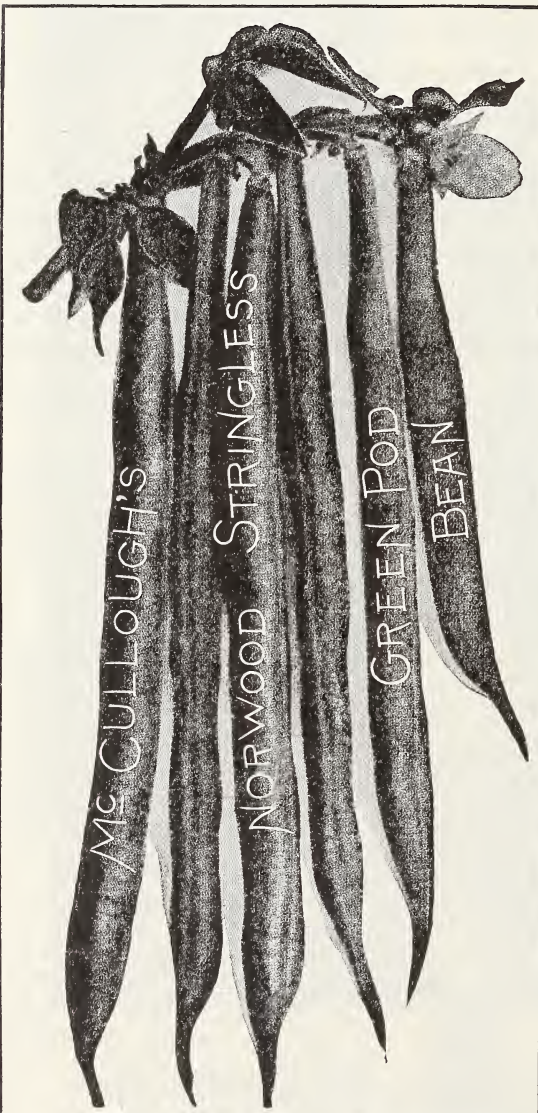 McCULLOUGH'S
NORWOOD STRINGLESS
GREEN POD
BEAN